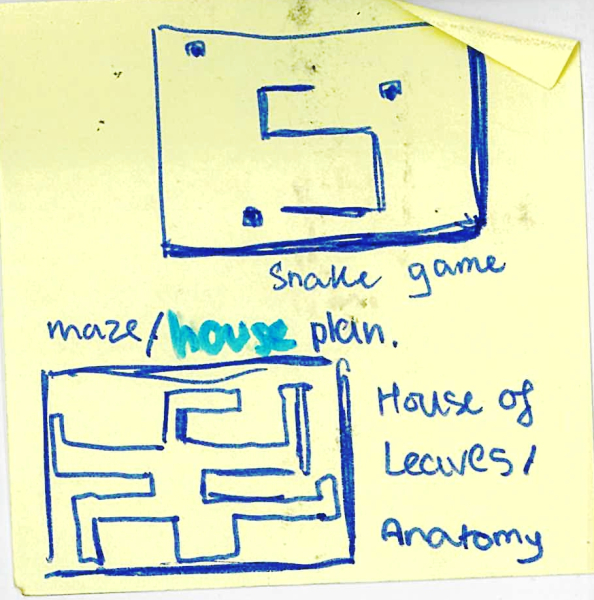 Snake game
maze/house plan.
House of
Leaves/
Anatomy